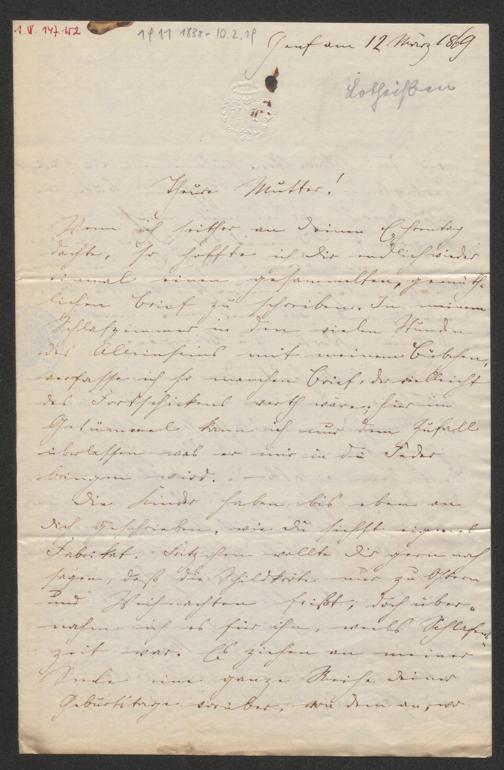 Genf am 12 März 1869
Lotheißen
Theure Mutter!
Wenn ich seither an deinen Ehrentag
dachte, so hoffte ich dir endlich wieder
einmal einen gesammelten, gemüth-
lichen Brief zu schreiben. In meinem
Schlafzimmer in den vielen Stunden
des Alleinseins mit meinem Bübchen,
verfasse ich so manchen Brief, der vielleicht
des Fortschickens werth wäre; hier im
Getümmel kann ich nur dem Zufall
überlassen was er mir in die Feder
bringen wird.
Die Kinder haben bis eben an
dich geschrieben, wie du siehst eigenes
Fabrikat. Fritzchen wollte dir gern noch
sagen, daß die Schildkröte nur zu Ostern
und Weihnachten frißt, doch über-
nahm ich es für ihn, weils Schlafens-
zeit war. Es ziehen an meiner
Seele eine ganze Reihe deiner
Geburtstage vorüber, von dem an, wo